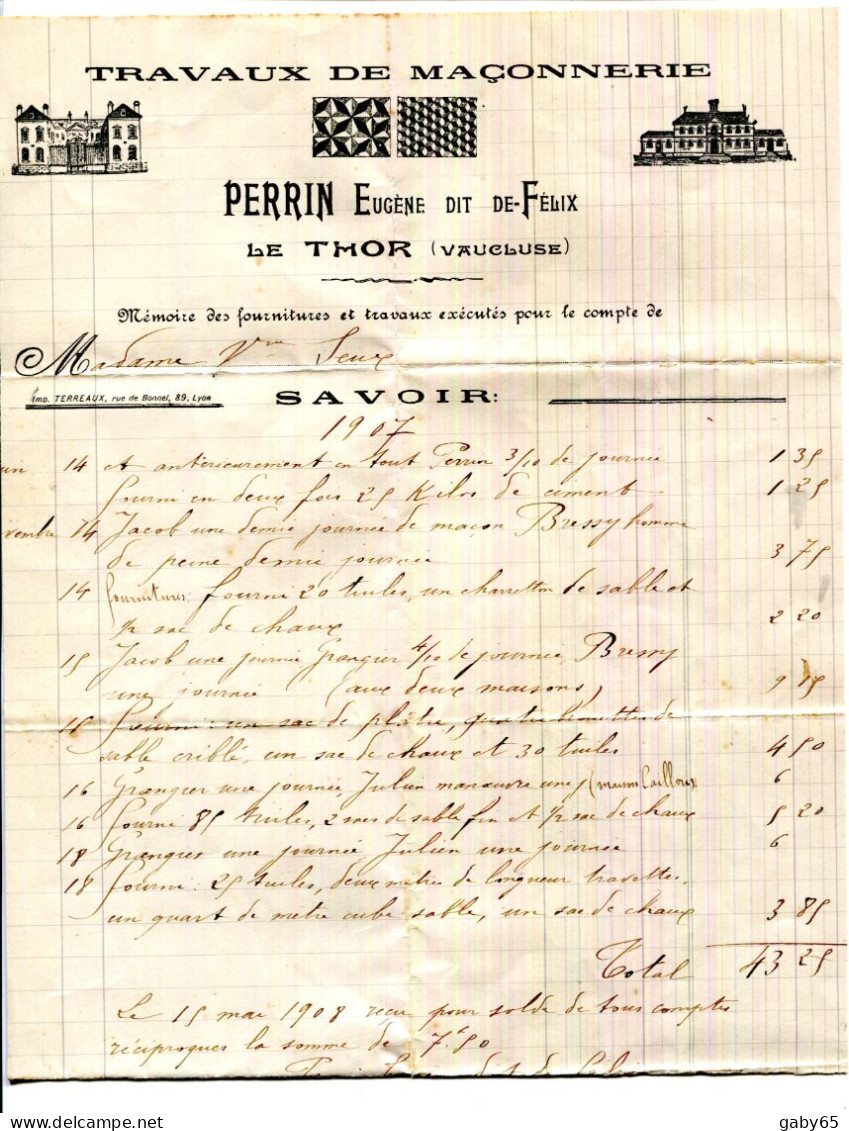 TRAVAUX DE MAÇONNERIE
PERRIN EUGÈNE DIT DE-FÉLIX
LE THOR (VAUCLUSE)
Mémoire des fournitures et travaux exécutés pour le compte de
Madame Vve Seux
Imp. TERREAUX, rue de Bonnel, 89, Lyon
SAVOIR:
1907
uin 14 et antérieurement en tout Perrin 3/10 de journée 1 35
fourni en deux fois 25 Kilos de ciment 1 25
vembre 14 Jacob une demie journée de maçon Bressy homme
de peine demie journée 3 75
14 fournitures: fourni 20 tuiles, un charretton de sable et
1/2 sac de chaux 2 20
15 Jacob une journée Grangier 4/10 de journée, Bressy
une journée (aux deux maisons) 9 15
15 fourni: un sac de plâtre, quatre brouettes de
sable criblé, un sac de chaux et 30 tuiles 4 50
16 Grangier une journée, Julien manœuvre une j (maison Cailloux 6
16 fourni 85 tuiles, 2 de sable fin et 1/2 sac de chaux 5 20
18 Grangier une journée, Julien une journée 6
18 fourni: 25 tuiles, deux mètres de longueur travettes,
un quart de mètre cube sable, un sac de chaux 3 85
Total 43 25
Le 15 mai 1908 reçu pour solde de tous comptes
réciproques la somme de 7f50
gaby65